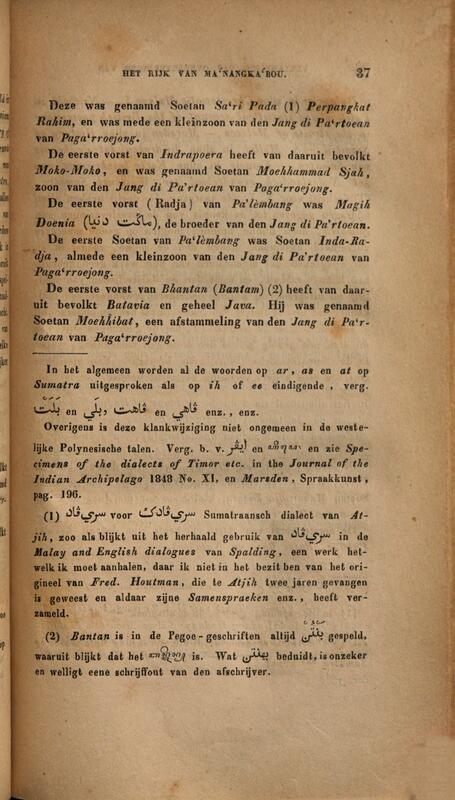 HET RIJK VAN MA'NANGKA'BOU. 37
Deze was genaamd Soetan Sa'ri Pada (1) Perpangkat
Rahim, en was mede een kleinzoon van den Jang di Pa'rtoean
van Paga'rroejong.
De eerste vorst van Indrapoera heeft van daaruit bevolkt
Moko-Moko, en was genaamd Soetan Moehhammad Sjah,
zoon van den Jang di Pa'rtoean van Poga'rroejong.
De eerste vorst (Radja) van Pa'lèmbang was Magih
Doenia (ماگت دنيا), de broeder van den Jang di Pa'rtoean.
De eerste Soetan van Pa'lèmbang was Soetan Inda-Ra-
dja, almede een kleinzoon van den Jang di Pa'rtoean van
Paga'rroejong.
De eerste vorst van Bhantan (Bantam) (2) heeft van daar-
uit bevolkt Batavia en geheel Java. Hij was genaamd
Soetan Moehhibat, een afstammeling van den Jang di Pa'r-
toean van Paga'rroejong.
In het algemeen worden al de woorden op ar, as en at op
Sumatra uitgesproken als op ih of ee eindigende, verg.
en en enz., enz.
Overigens is deze klankwijziging niet ongemeen in de weste-
lijke Polynesische talen. Verg. b. v. en en zie Spe-
cimens of the dialects of Timor etc. in the Journal of the
Indian Archipelago 1848 No. XI, en Marsden, Spraakkunst,
pag. 196.
(1) voor Sumatraansch dialect van At-
jih, zoo als blijkt uit het herhaald gebruik van in de
Malay and English dialogues van Spalding, een werk het-
welk ik moet aanhalen, daar ik niet in het bezit ben van het ori-
gineel van Fred. Houtman, die te Atjih twee jaren gevangen
is geweest en aldaar zijne Samenspraeken enz., heeft ver-
zameld.
(2) Bantan is in de Pegoe-geschriften altijd بنتن gespeld,
waaruit blijkt dat het is. Wat بهنتن beduidt, is onzeker
en welligt eene schrijffout van den afschrijver.